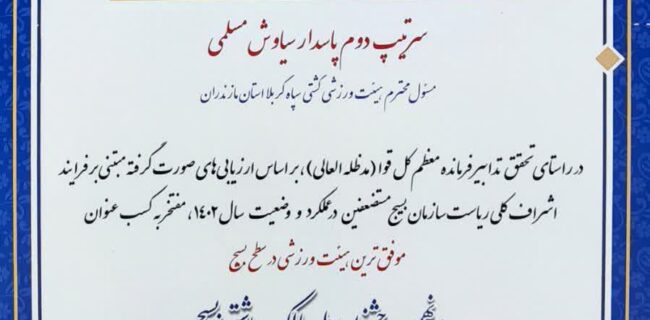 سرتیپ دوم پاسدار سیاوش مسلمی
مسئول محترم هیئت ورزشی کشتی سپاه کربلا استان مازندران
در راستای تحقق تدابیر فرمانده معظم کل قوا (مدظله العالی)، براساس ارزیابی های صورت گرفته مبتنی بر فرایند
اشراف کلی ریاست سازمان بسیج مستضعفین در عملکرد و وضعیت سال ۱۴۰۲، مفتخر به کسب عنوان
موفق ترین هیئت ورزشی در سطح بسیج